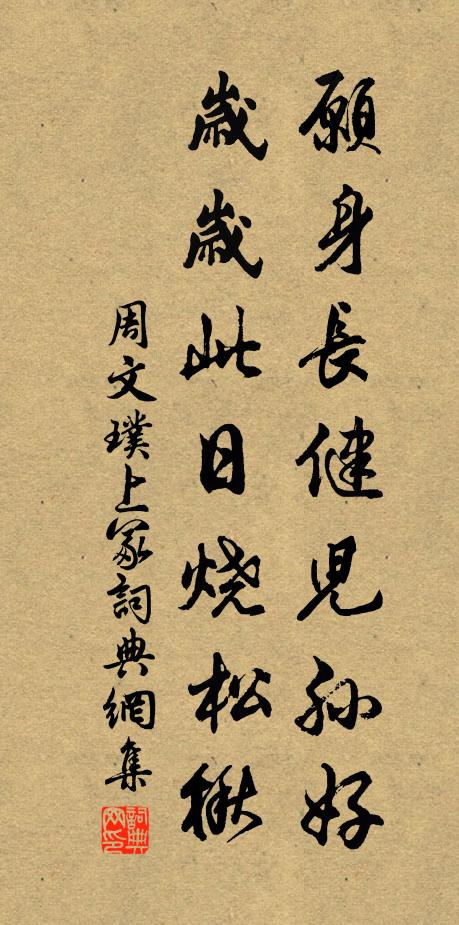 願身長健児孫好
歲歲此日燒松楸
周文璞上冢詞典網集
詞典網印